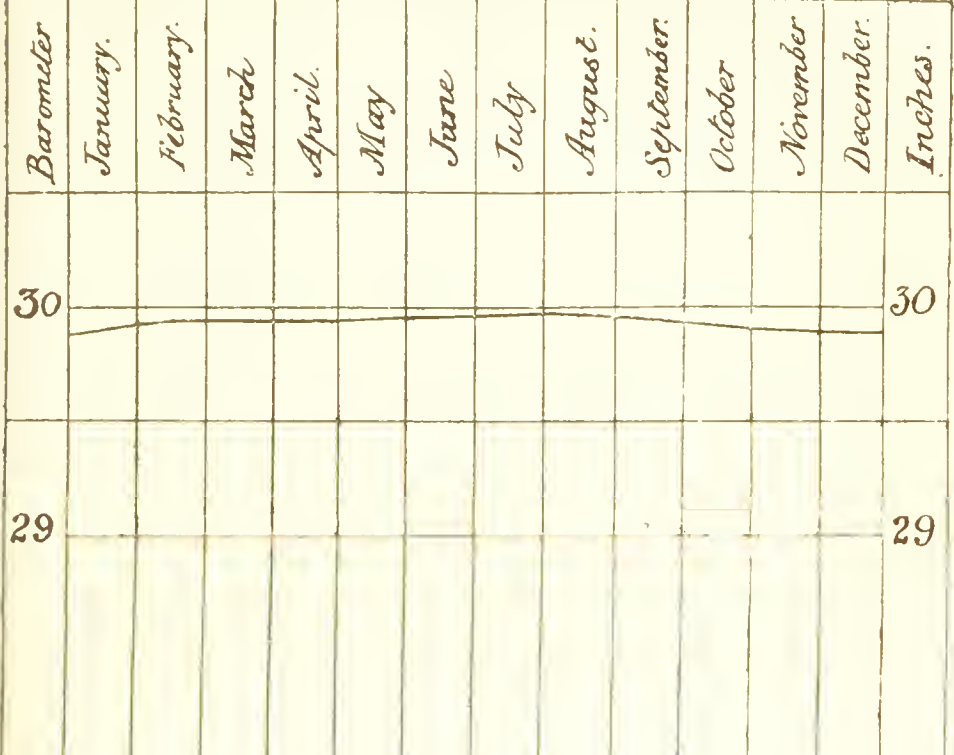 Barometer
January.
February.
March
April.
May
June
July
August.
September.
October
November
December.
Inches.
30 30
29 29